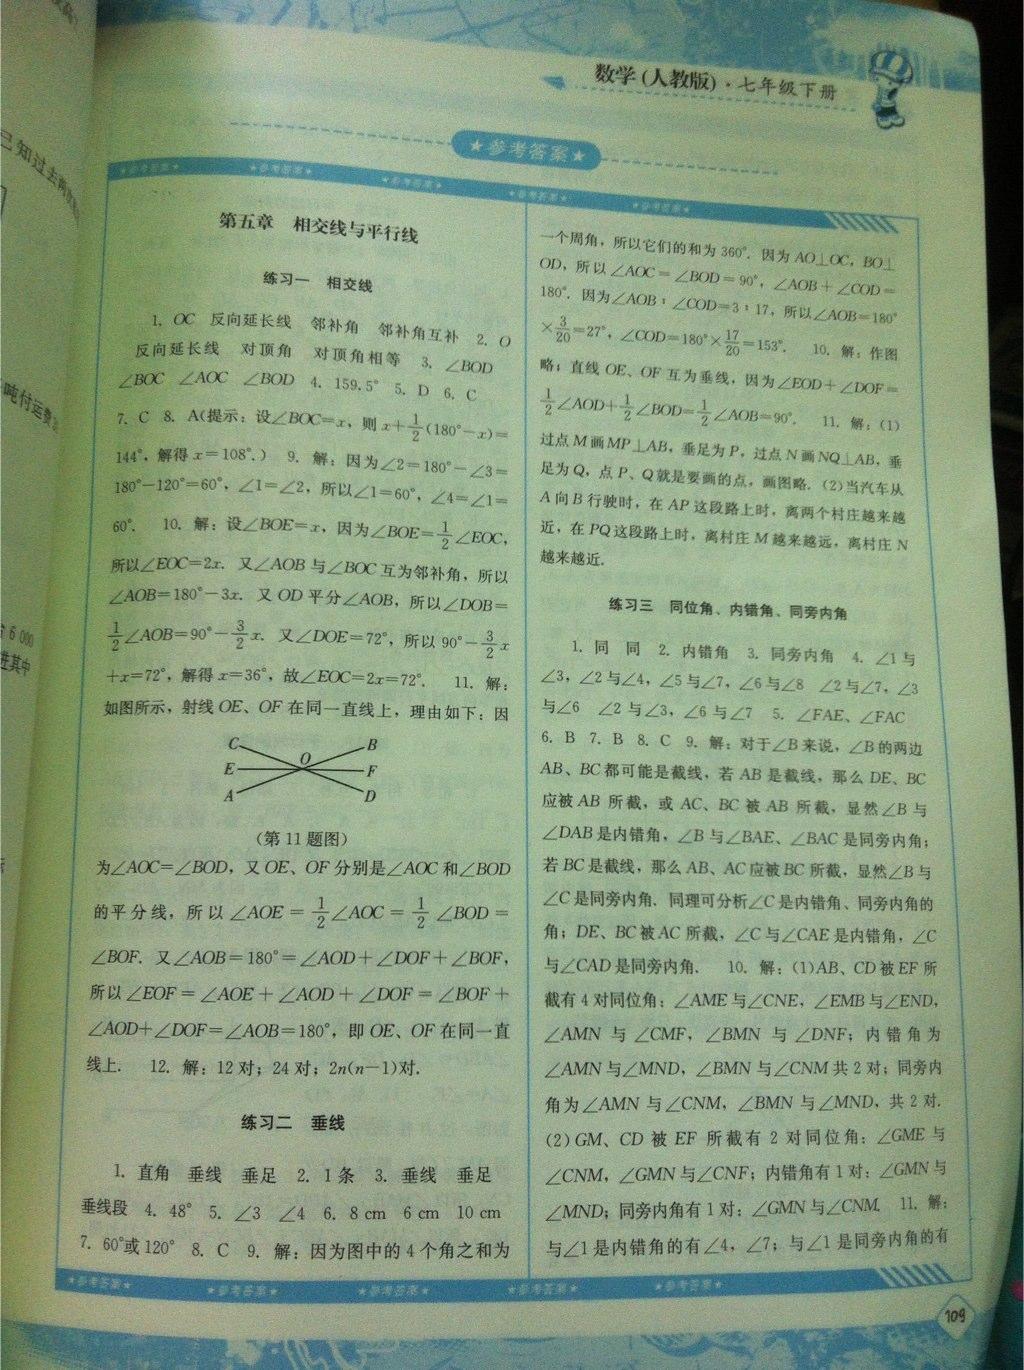 数学(人教版)·七年级下册
★参考答案★
★参考答案★ ★参考答案★ ★参考答案★ ★参考答案★ ★参考答案★
第五章 相交线与平行线
练习一 相交线
1. OC 反向延长线 邻补角 邻补角互补 2. O
反向延长线 对顶角 对顶角相等 3. ∠BOD
∠BOC ∠AOC ∠BOD 4. 159.5° 5. D 6. C
7. C 8. A(提示:设∠BOC=x,则x+1/2(180°-x)=
144°,解得x=108°.) 9. 解:因为∠2=180°-∠3=
180°-120°=60°,∠1=∠2,所以∠1=60°,∠4=∠1=
60°. 10. 解:设∠BOE=x,因为∠BOE=1/2∠EOC,
所以∠EOC=2x. 又∠AOB与∠BOC互为邻补角,所以
∠AOB=180°-3x. 又OD平分∠AOB,所以∠DOB=
1/2∠AOB=90°-3/2x. 又∠DOE=72°,所以90°-3/2x
+x=72°,解得x=36°,故∠EOC=2x=72°. 11. 解:
如图所示,射线OE、OF在同一直线上,理由如下:因
C B
E O F
A D
(第11题图)
为∠AOC=∠BOD,又OE、OF分别是∠AOC和∠BOD
的平分线,所以∠AOE=1/2∠AOC=1/2∠BOD=
∠BOF. 又∠AOB=180°=∠AOD+∠DOF+∠BOF,
所以∠EOF=∠AOE+∠AOD+∠DOF=∠BOF+
∠AOD+∠DOF=∠AOB=180°,即OE、OF在同一直
线上. 12. 解:12对;24对;2n(n-1)对.
练习二 垂线
1. 直角 垂线 垂足 2. 1条 3. 垂线 垂足
垂线段 4. 48° 5. ∠3 ∠4 6. 8 cm 6 cm 10 cm
7. 60°或120° 8. C 9. 解:因为图中的4个角之和为
一个周角,所以它们的和为360°. 因为AO⊥OC,BO⊥
OD,所以∠AOC=∠BOD=90°,∠AOB+∠COD=
180°. 因为∠AOB:∠COD=3:17,所以∠AOB=180°
×3/20=27°,∠COD=180°×17/20=153°. 10. 解:作图
略;直线OE、OF互为垂线,因为∠EOD+∠DOF=
1/2∠AOD+1/2∠BOD=1/2∠AOB=90°. 11. 解:(1)
过点M画MP⊥AB,垂足为P,过点N画NQ⊥AB,垂
足为Q,点P、Q就是要画的点,画图略. (2)当汽车从
A向B行驶时,在AP这段路上时,离两个村庄越来越
近,在PQ这段路上时,离村庄M越来越远,离村庄N
越来越近.
练习三 同位角、内错角、同旁内角
1. 同 同 2. 内错角 3. 同旁内角 4. ∠1与
∠3,∠2与∠4,∠5与∠7,∠6与∠8 ∠2与∠7,∠3
与∠6 ∠2与∠3,∠6与∠7 5. ∠FAE、∠FAC
6. B 7. B 8. C 9. 解:对于∠B来说,∠B的两边
AB、BC都可能是截线,若AB是截线,那么DE、BC
应被AB所截,或AC、BC被AB所截,显然∠B与
∠DAB是内错角,∠B与∠BAE、∠BAC是同旁内角;
若BC是截线,那么AB、AC应被BC所截,显然∠B与
∠C是同旁内角. 同理可分析∠C是内错角、同旁内角的
角;DE、BC被AC所截,∠C与∠CAE是内错角,∠C
与∠CAD是同旁内角. 10. 解:(1)AB、CD被EF所
截有4对同位角:∠AME与∠CNE,∠EMB与∠END,
∠AMN与∠CMF,∠BMN与∠DNF;内错角为
∠AMN与∠MND,∠BMN与∠CNM共2对;同旁内
角为∠AMN与∠CNM,∠BMN与∠MND,共2对.
(2)GM、CD被EF所截有2对同位角:∠GME与
∠CNM,∠GMN与∠CNF;内错角有1对:∠GMN与
∠MND;同旁内角有1对:∠GMN与∠CNM. 11. 解:
与∠1是内错角的有∠4,∠7;与∠1是同旁内角的有
★参考答案★ ★参考答案★ ★参考答案★ ★参考答案★ ★参考答案★
109
已知过去两
吨付运费
6 000
进其中